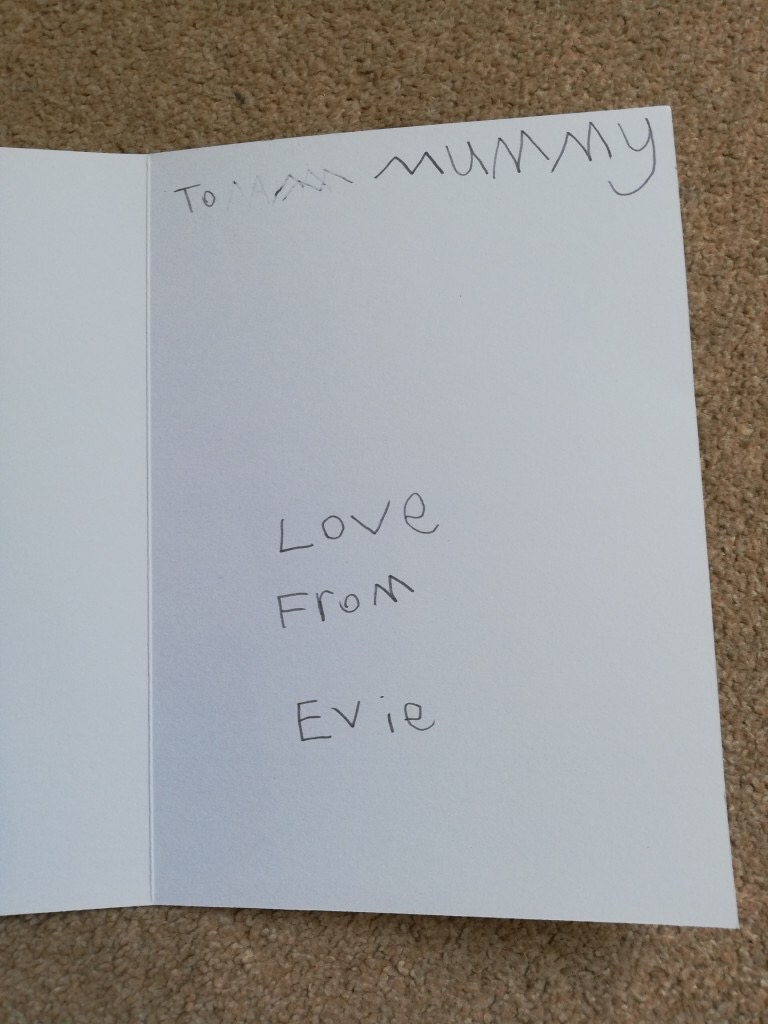 To MUMMY
Love
From
Evie